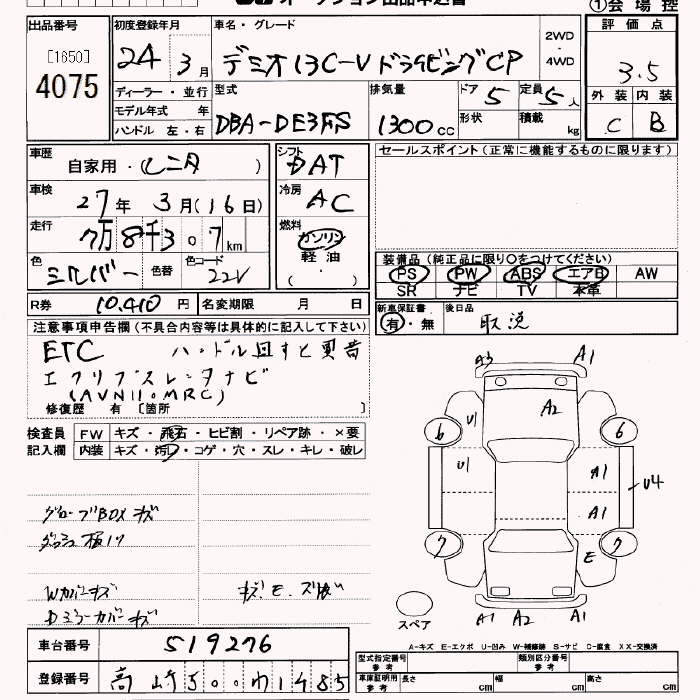 オークション出品申込書
①会場控
出品番号
[1650]
4075
初度登録年月
24年3月
車名・グレード
デミオ 13C-V ドライビングCP
2WD
・
4WD
評価点
3.5
外装 内装
C B
ディーラー・並行
モデル年式 年
ハンドル 左・右
型式
DBA-DE3FS
排気量
1300cc
ドア 5
定員 5人
形状
積載 kg
車歴
自家用・(レンタ)
シフト
DAT
セールスポイント(正常に機能するものに限ります)
車検
27年3月(16日)
冷房
AC
走行
7万8千307km
燃料
ガソリン
軽油
( ・ )
色
シルバー
色替
色コード
22V
装備品(純正品に限り○をつけてください)
PS PW ABS エアB AW
SR ナビ TV 本革
R券 10.410円
名変期限 月 日
新車保証書
有・無
後日品
取説
注意事項申告欄(不具合内容等は具体的に記入して下さい)
ETC ハンドル回すと異音
エクリプスレンタナビ
(AVN110MRC)
修復歴 有 [箇所 ]
検査員
記入欄
FW キズ・飛石・ヒビ割・リペア跡・×要
内装 キズ・汚れ・コゲ・穴・スレ・キレ・破レ
グローブBOXキズ
Wカバーキズ
Dミラーカバーキズ
A3 A1
A2
U1
6 6
U1 A1
U4
A1
7 7
E
A1 A2 A1
スペア
A-キズ E-エクボ U-凹み W-補修跡 S-サビ C-腐食 XX-交換済
車台番号
519276
登録番号
高崎500わ1485
型式指定番号
参考
類別区分番号
参考
車庫証明用
参考
長さ cm 幅 cm 高さ cm